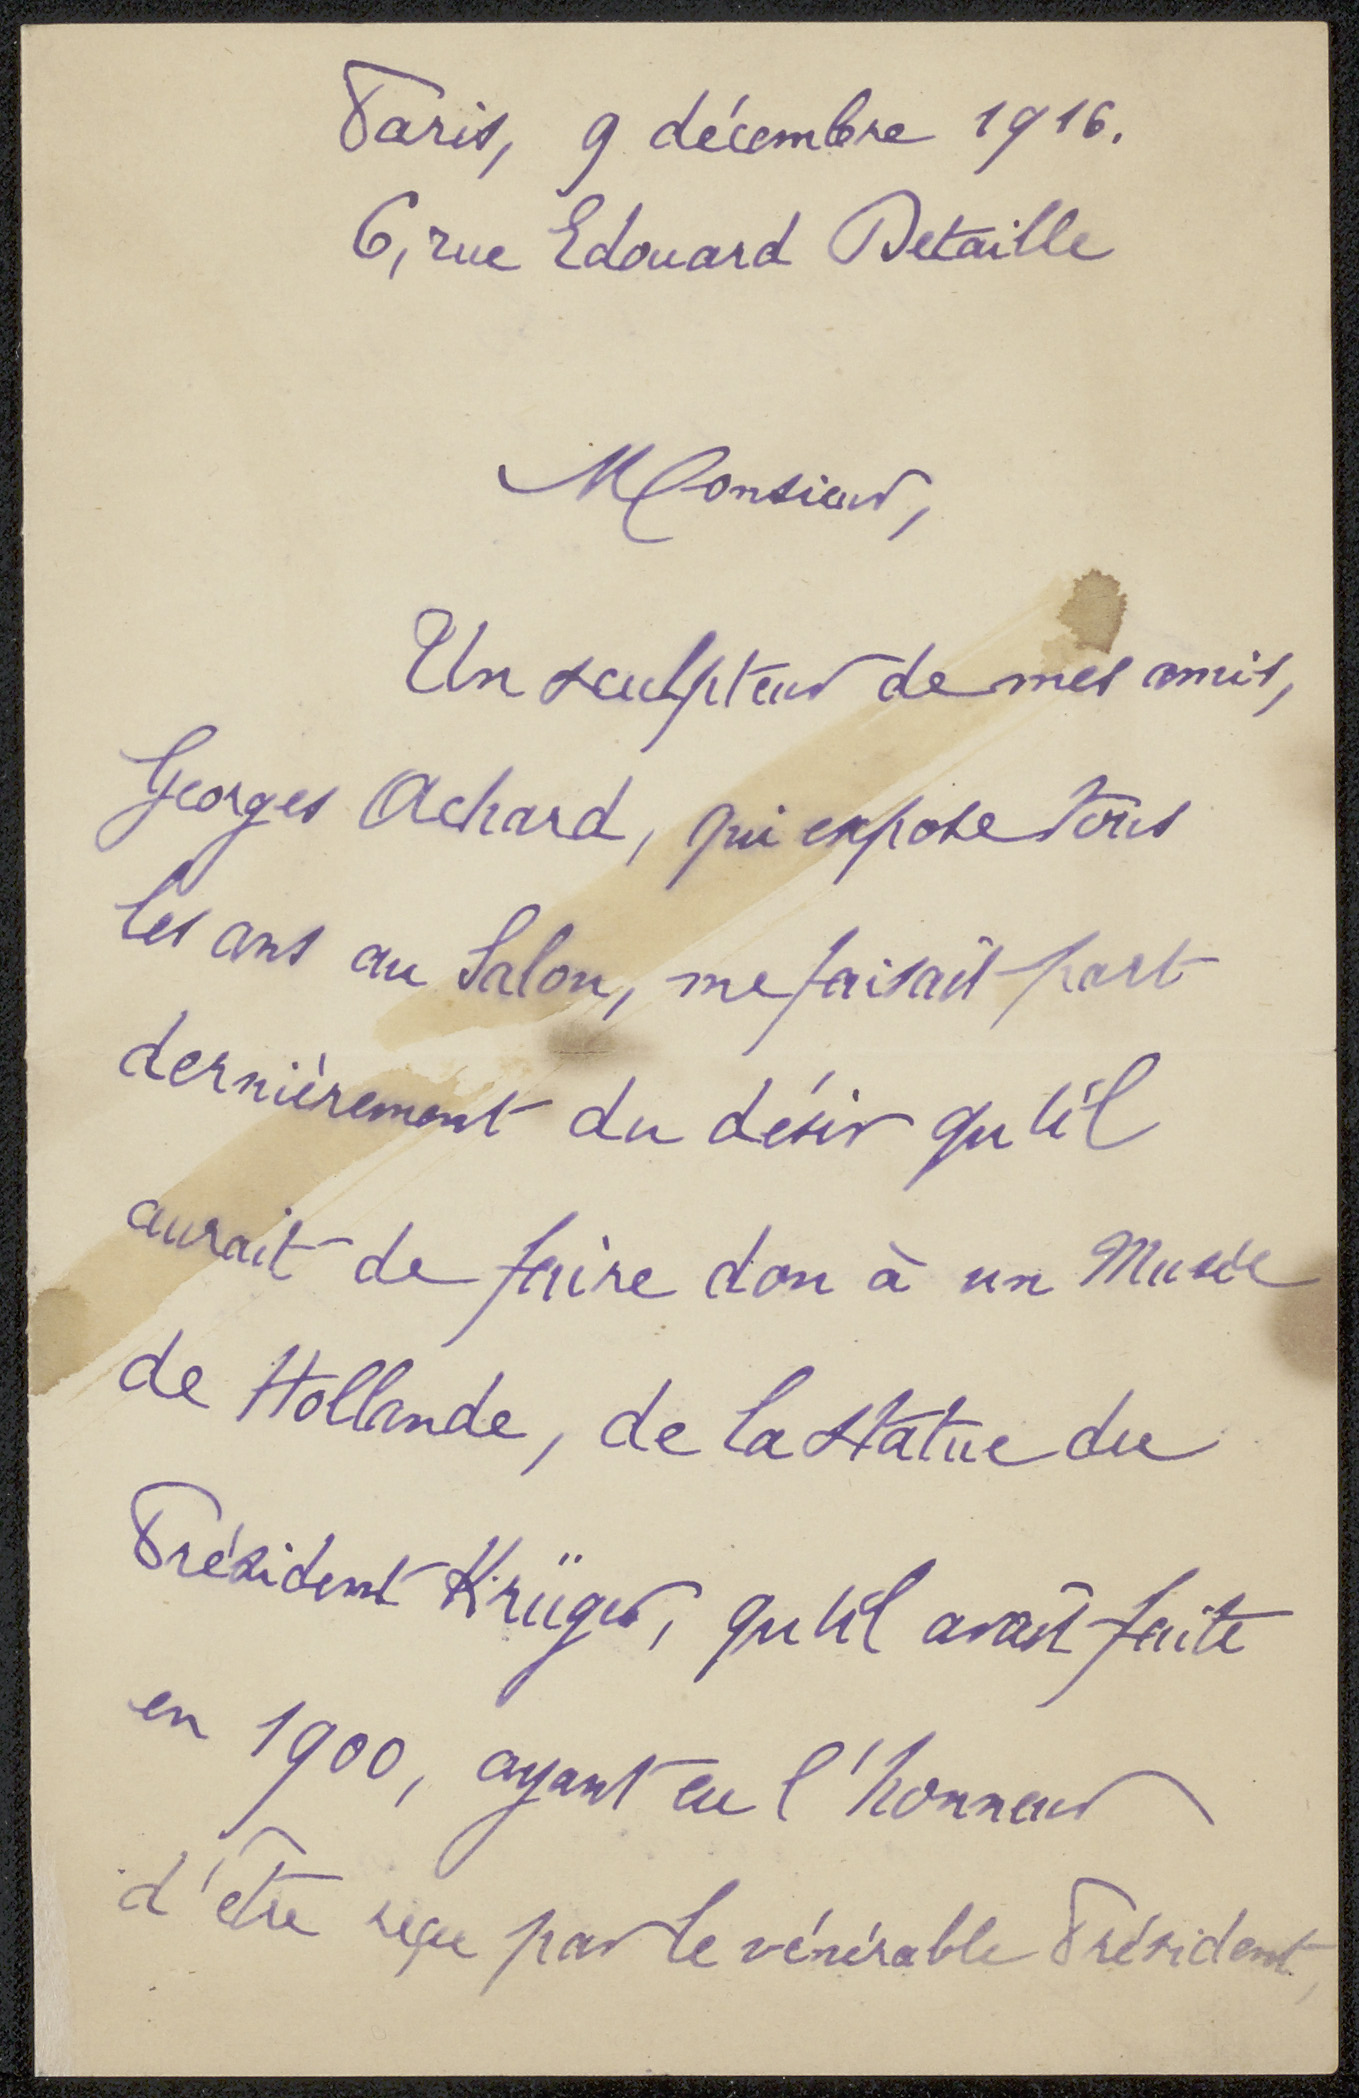 Paris, 9 décembre 1916.
6, rue Edouard Detaille
Monsieur,
Un sculpteur de mes amis,
Georges Achard, qui expose tous
les ans au Salon, me faisait part
dernièrement du désir qu'il
aurait de faire don à un Musée
de Hollande, de la statue du
Président Krüger, qu'il avait faite
en 1900, ayant eu l'honneur
d'être reçu par le vénérable Président,